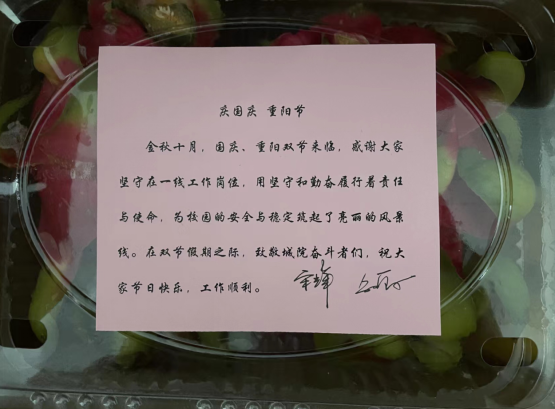 庆国庆 重阳节
金秋十月，国庆、重阳双节来临，感谢大家
坚守在一线工作岗位，用坚守和勤奋履行着责任
与使命，为校园的安全与稳定筑起了亮丽的风景
线。在双节假期之际，致敬城院奋斗者们，祝大
家节日快乐，工作顺利。